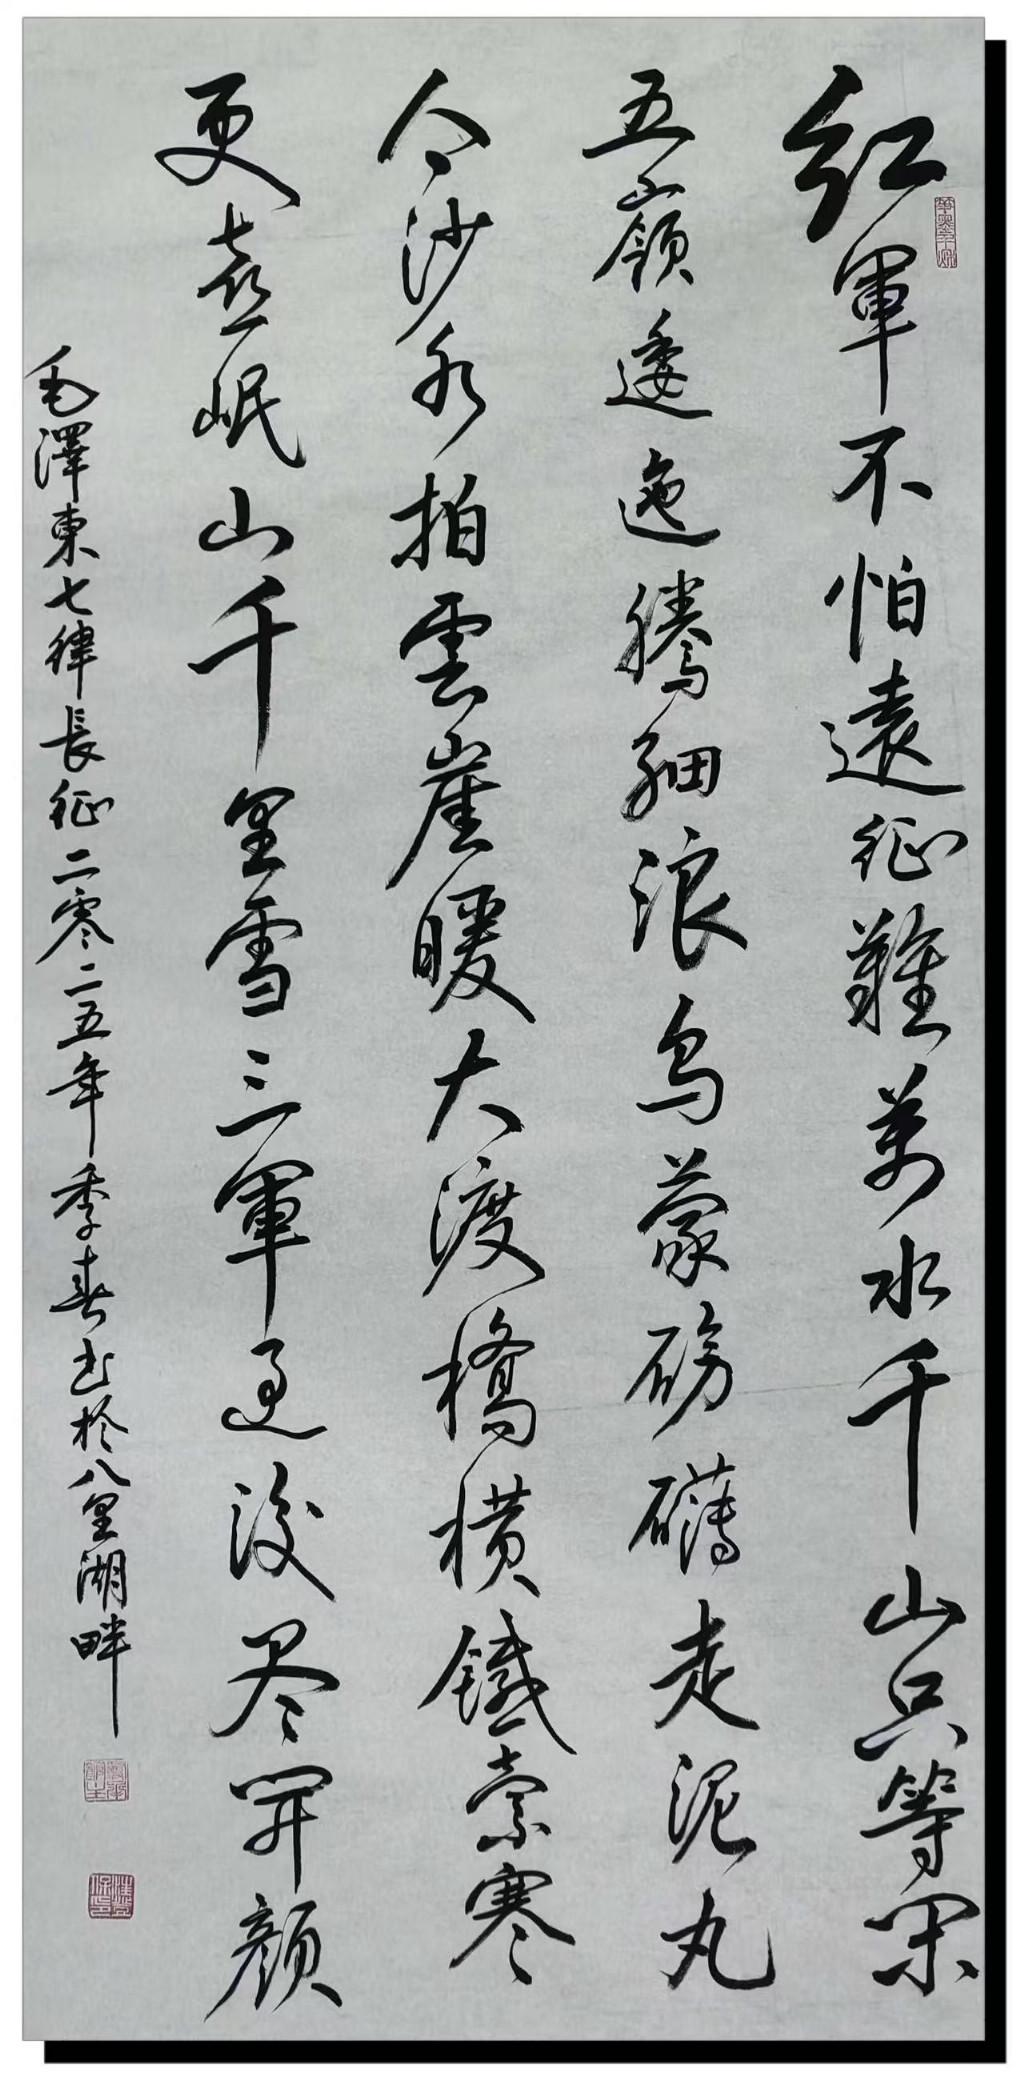 红軍不怕遠征難萬水千山只等閑
五嶺逶迤騰細浪烏蒙磅礴走泥丸
金沙水拍雲崖暖大渡橋横鐵索寒
更喜岷山千里雪三軍過後尽開顔
毛澤東七律長征二零二五年季春书於八里湖畔